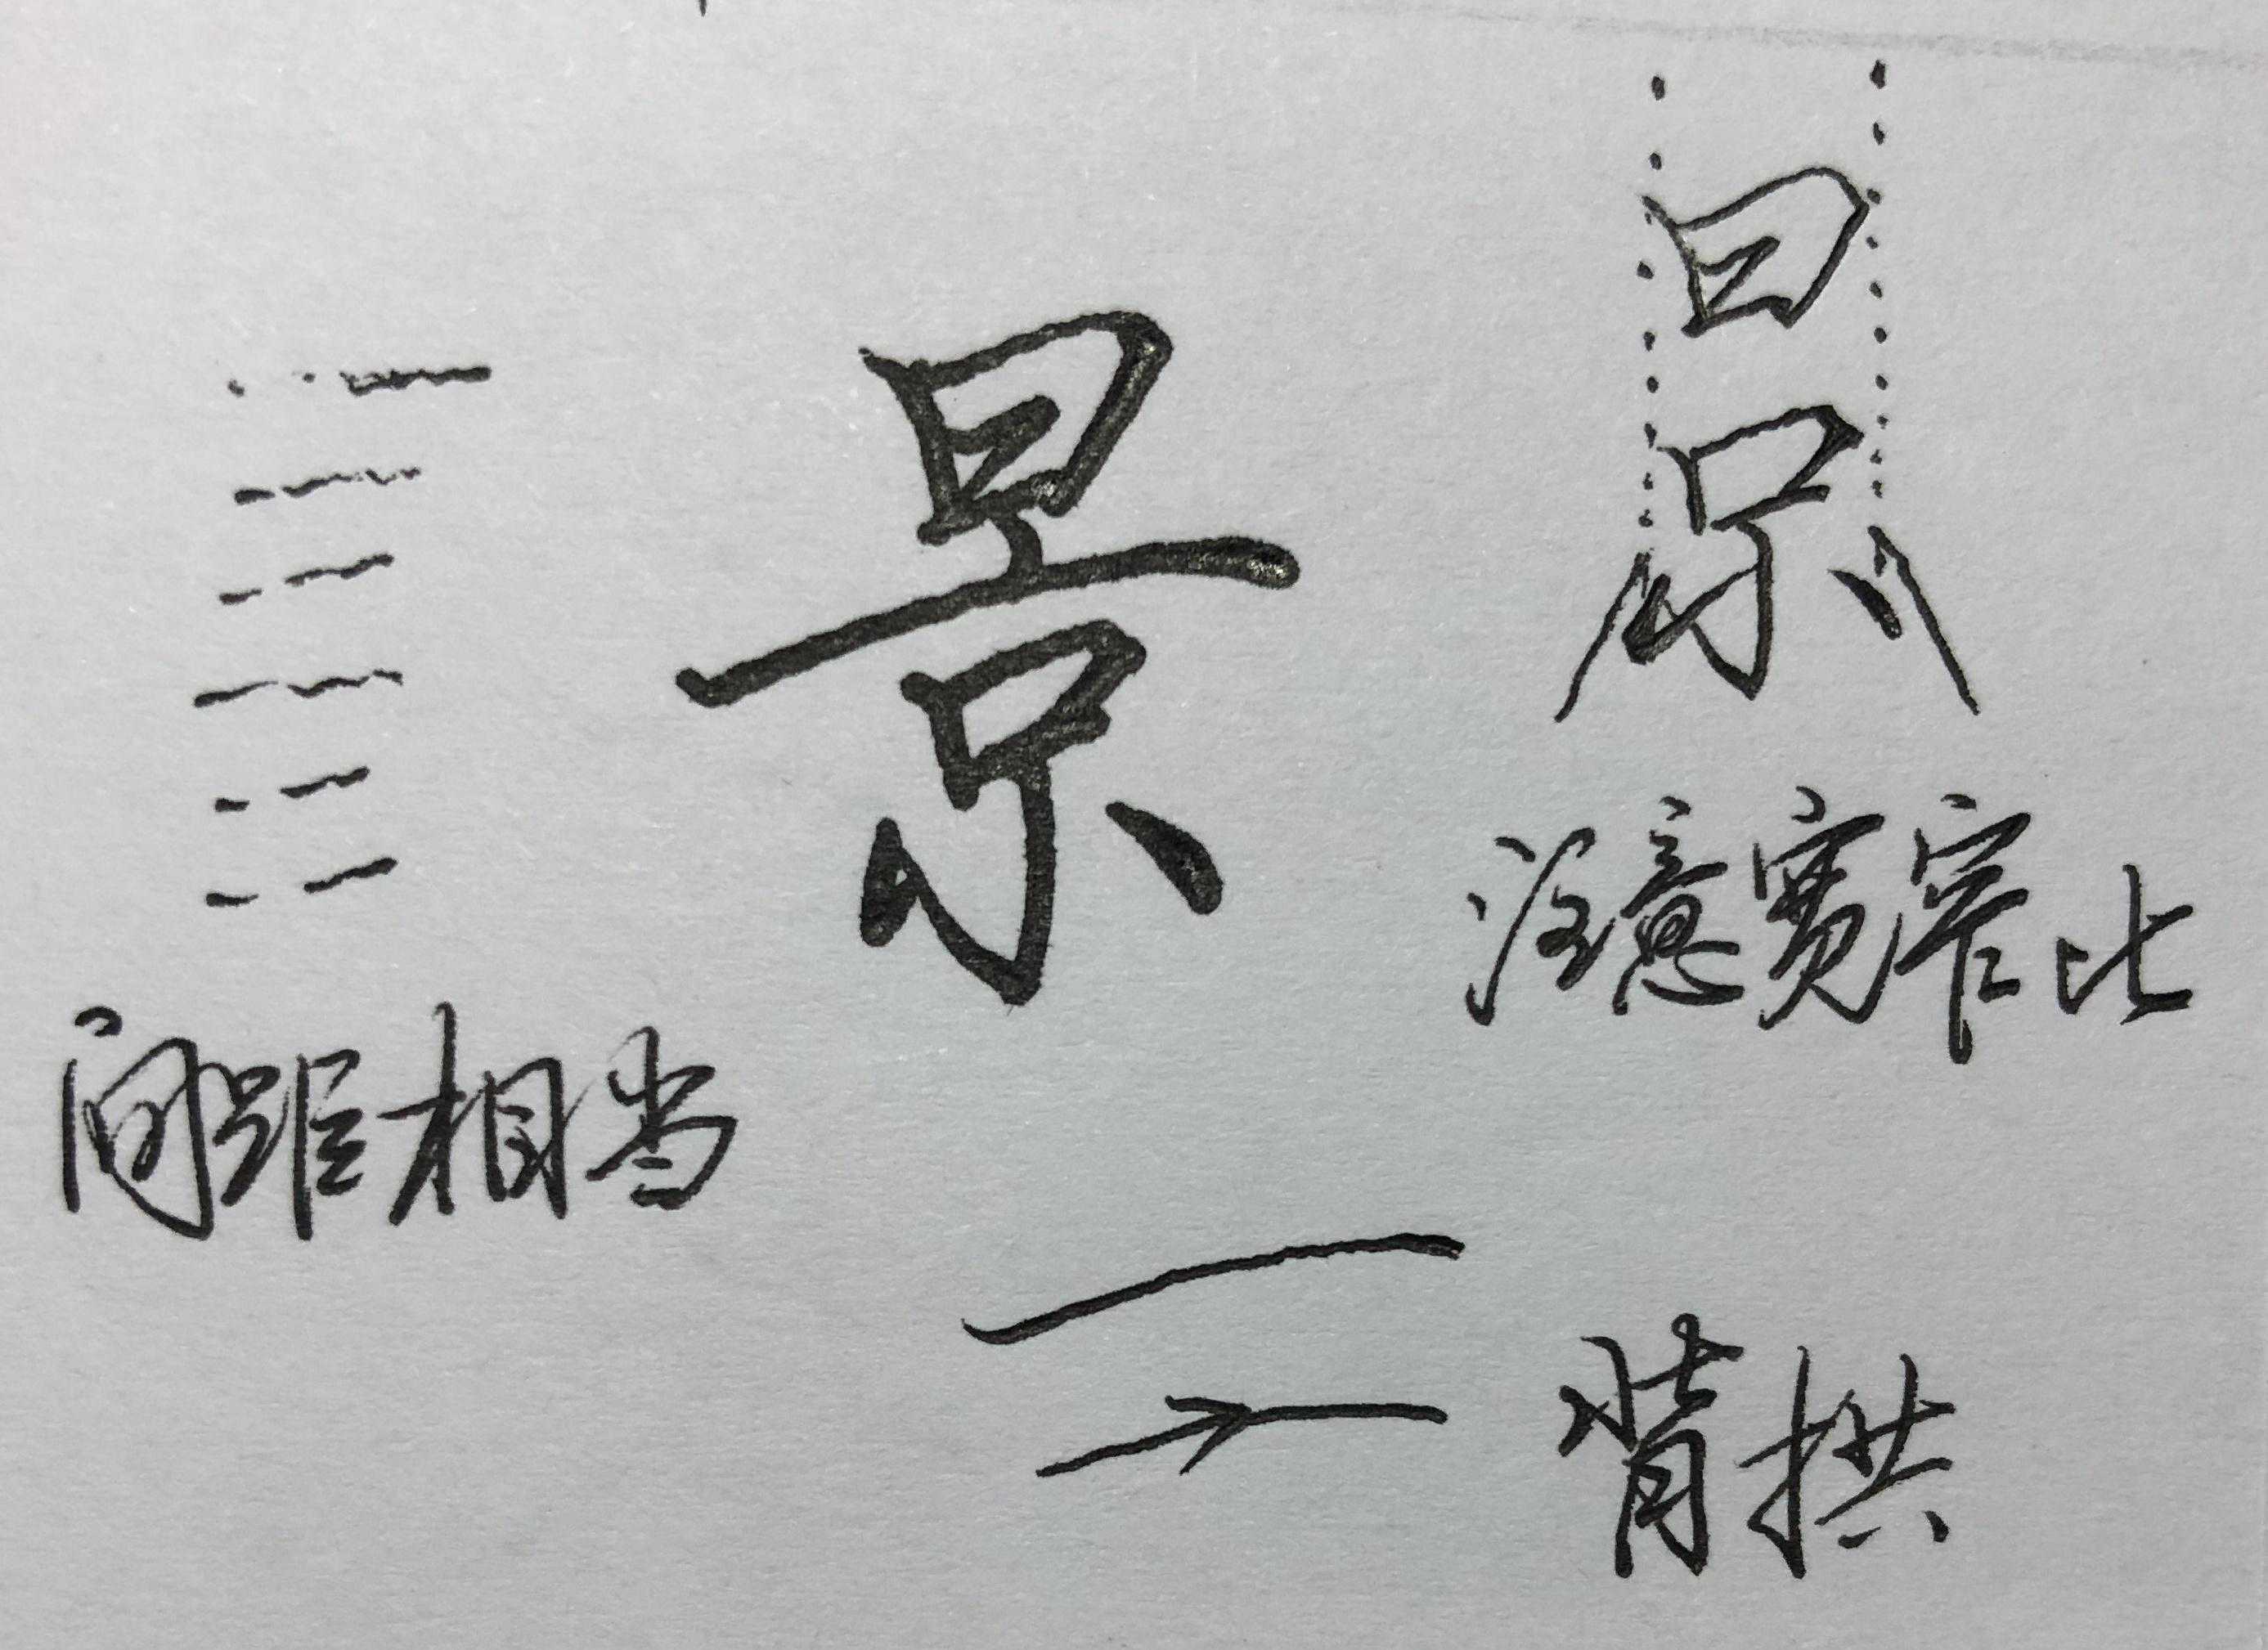 景
注意宽窄比
间距相当
背拱